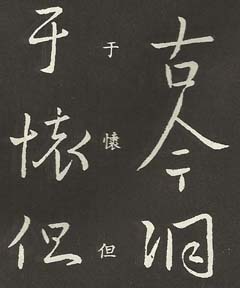 古今洞
于懷但
于懷但